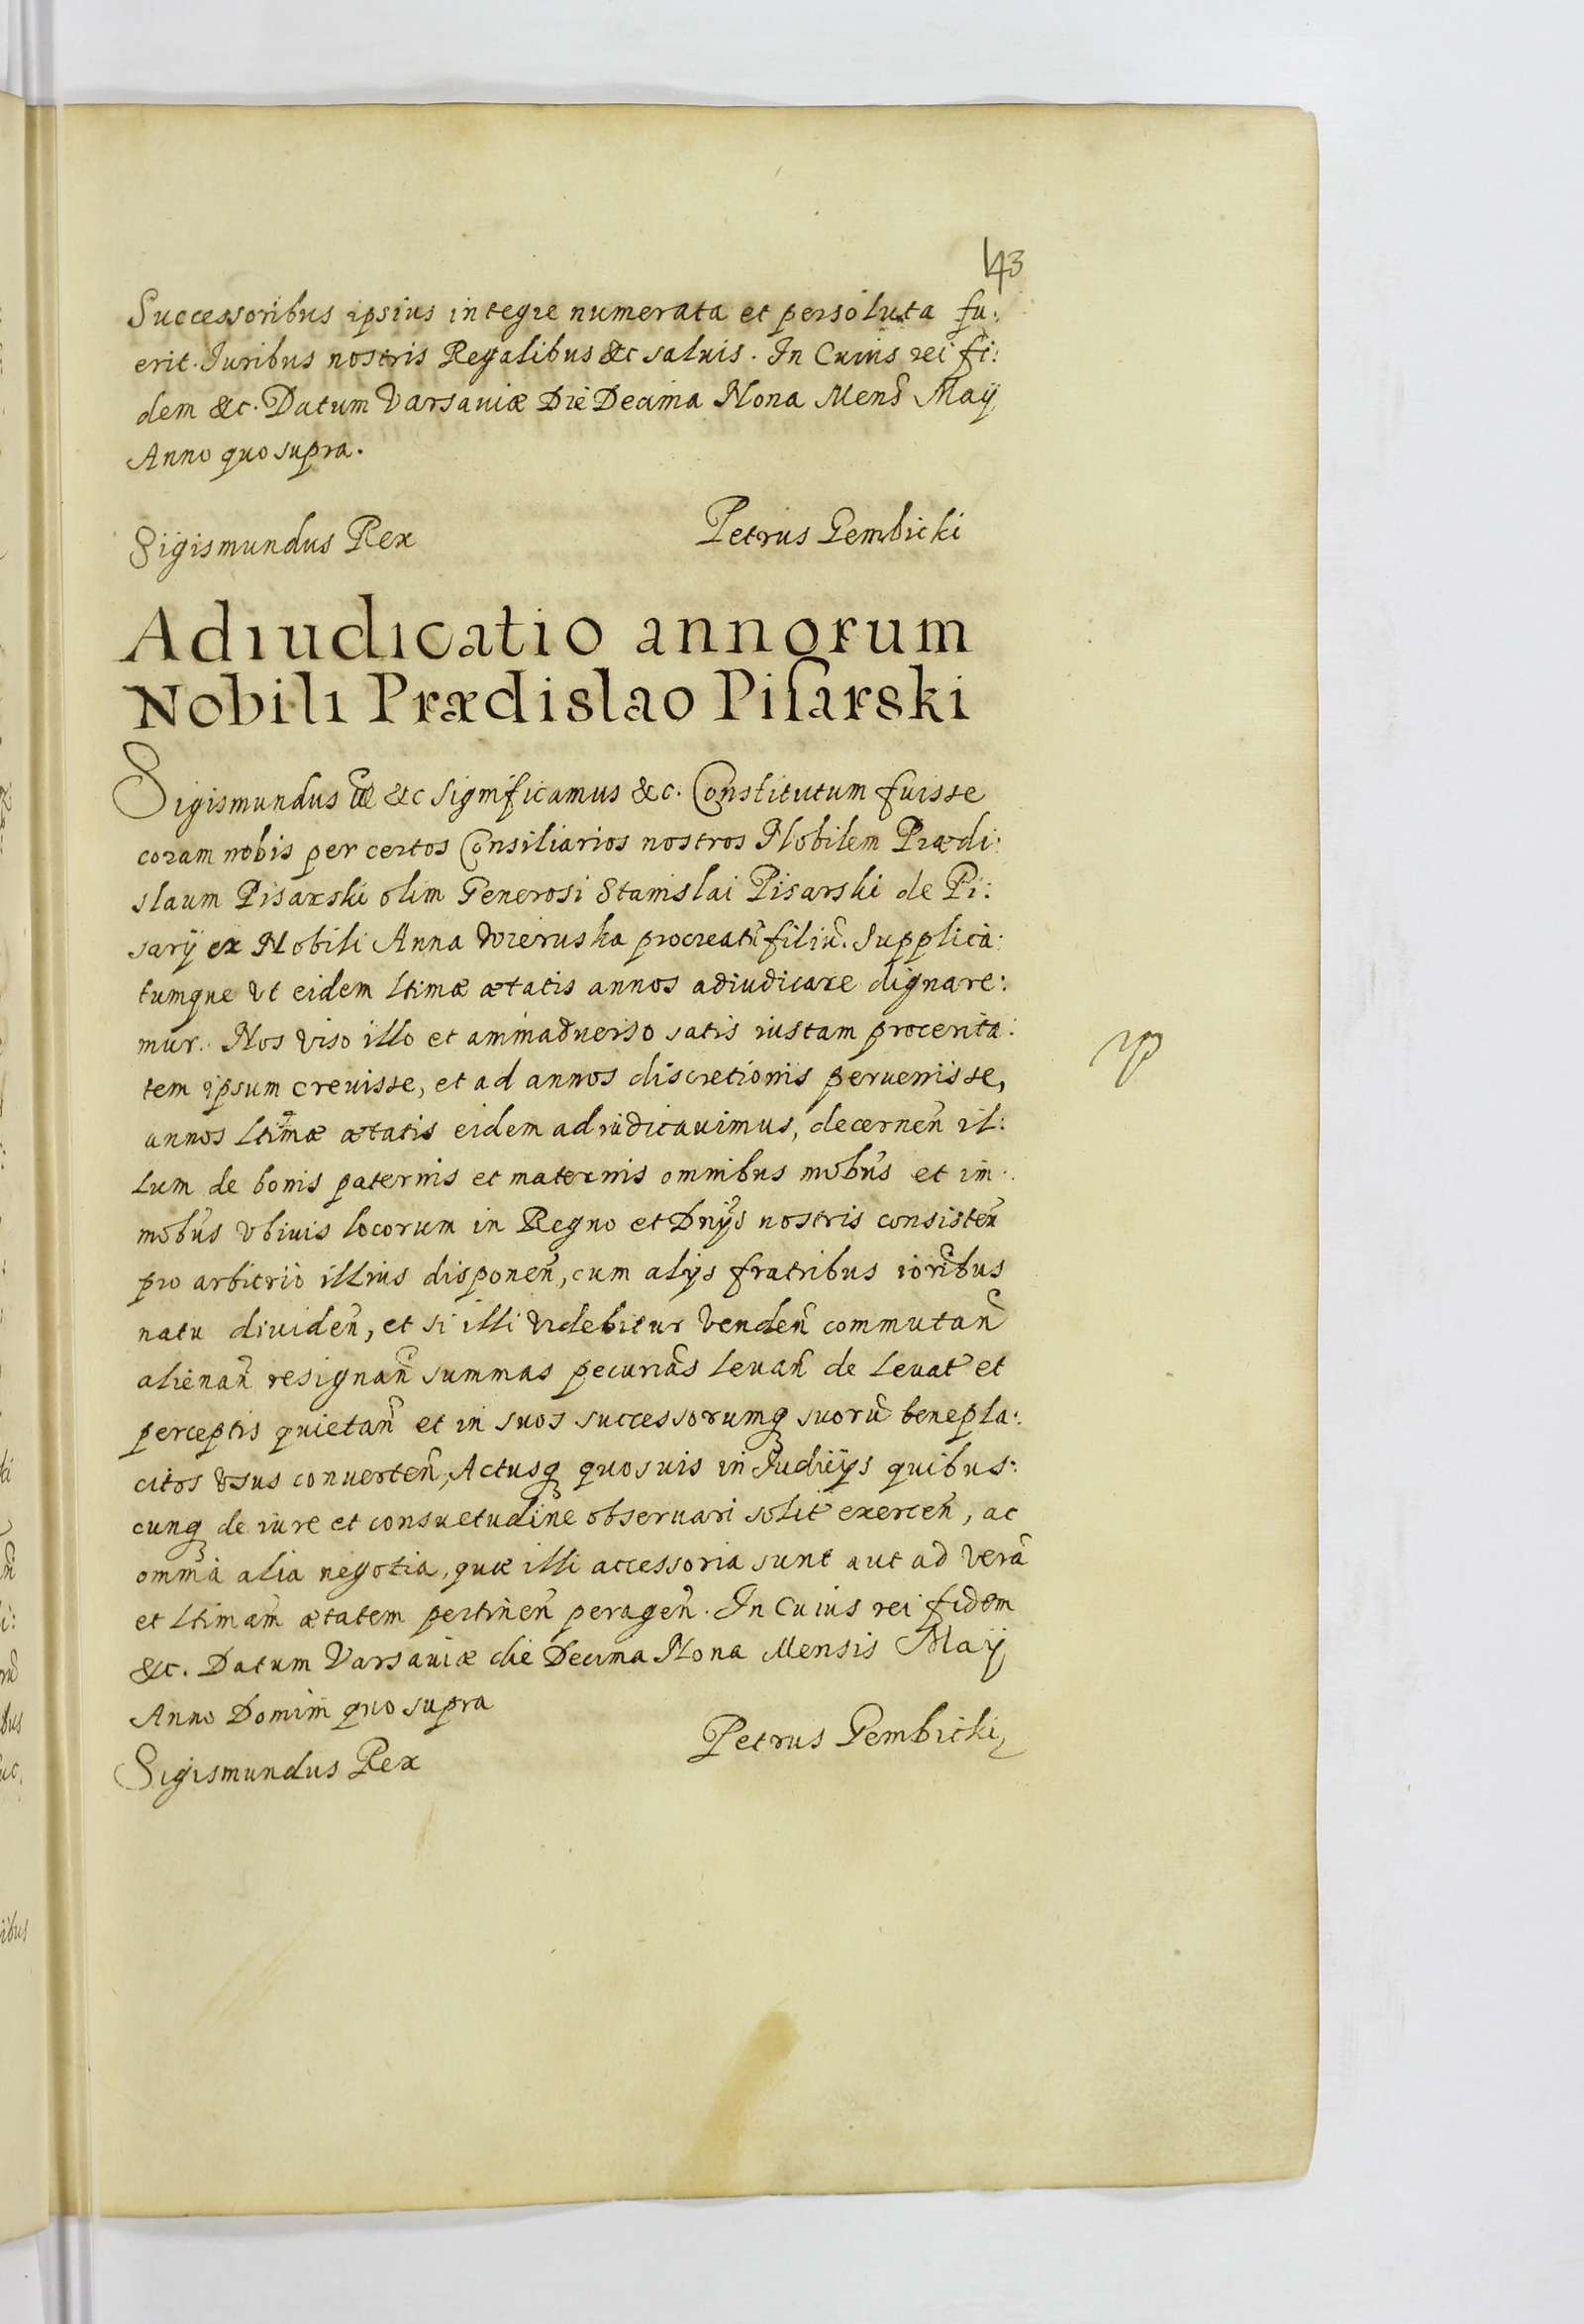 143
Successoribus ipsius integre numerata et persoluta fu:
erit. Iuribus nostris Regalibus &c saluis. In Cuius rei fi:
dem &c. Datum Varsauiæ Die Decima Nona Mens̃ Maÿ
Anno quo supra.
Sigismundus Rex
Petrus Gembicki
Adiudicatio annorum
Nobili Prædislao Pisarski
Sigismundus &c significamus &c. Constitutum fuisse
coram nobis per certos Consiliarios nostros Nobilem Prædi:
slaum Pisarski olim Generosi Stanislai Pisarski de Pi:
sarÿ ex Nobili Anna Wieruska procreatũ filiũ. Supplica:
tumque vt eidem ltimæ ætatis annos adiudicare dignare:
mur. Nos viso illo et animaduerso satis iustam procerita:
tem ipsum creuisse, et ad annos discretionis peruenisse,
annos ltimæ ætatis eidem adiudicauimus, decerneñ il:
lum de bonis paternis et maternis omnibus mobũs et im:
mobũs vbiuis locorum in Regno et Dnÿs nostris consisteñ
pro arbitrio illius disponeñ, cum alÿs fratribus ioribus
natu diuideñ, et si illi videbitur vendeñ commutañ
alienañ resignañ summas pecuniãs leuañ de leuat̃ et
perceptis quietañ et in suos successorumq suorũ benepla:
citos vsus conuerteñ, Actusq quosuis in Iudicÿs quibus:
cunq de iure et consuetudine obseruari solit̃ exerceñ, ac
omnia alia negotia, quæ illi accessoria sunt aut ad verã
et ltimam̃ ætatem pertineñ perageñ. In Cuius rei fidem
&c. Datum Varsauiæ die Decima Nona Mensis Maÿ
Anno Domini quo supra
Petrus Gembicki
Sigismundus Rex